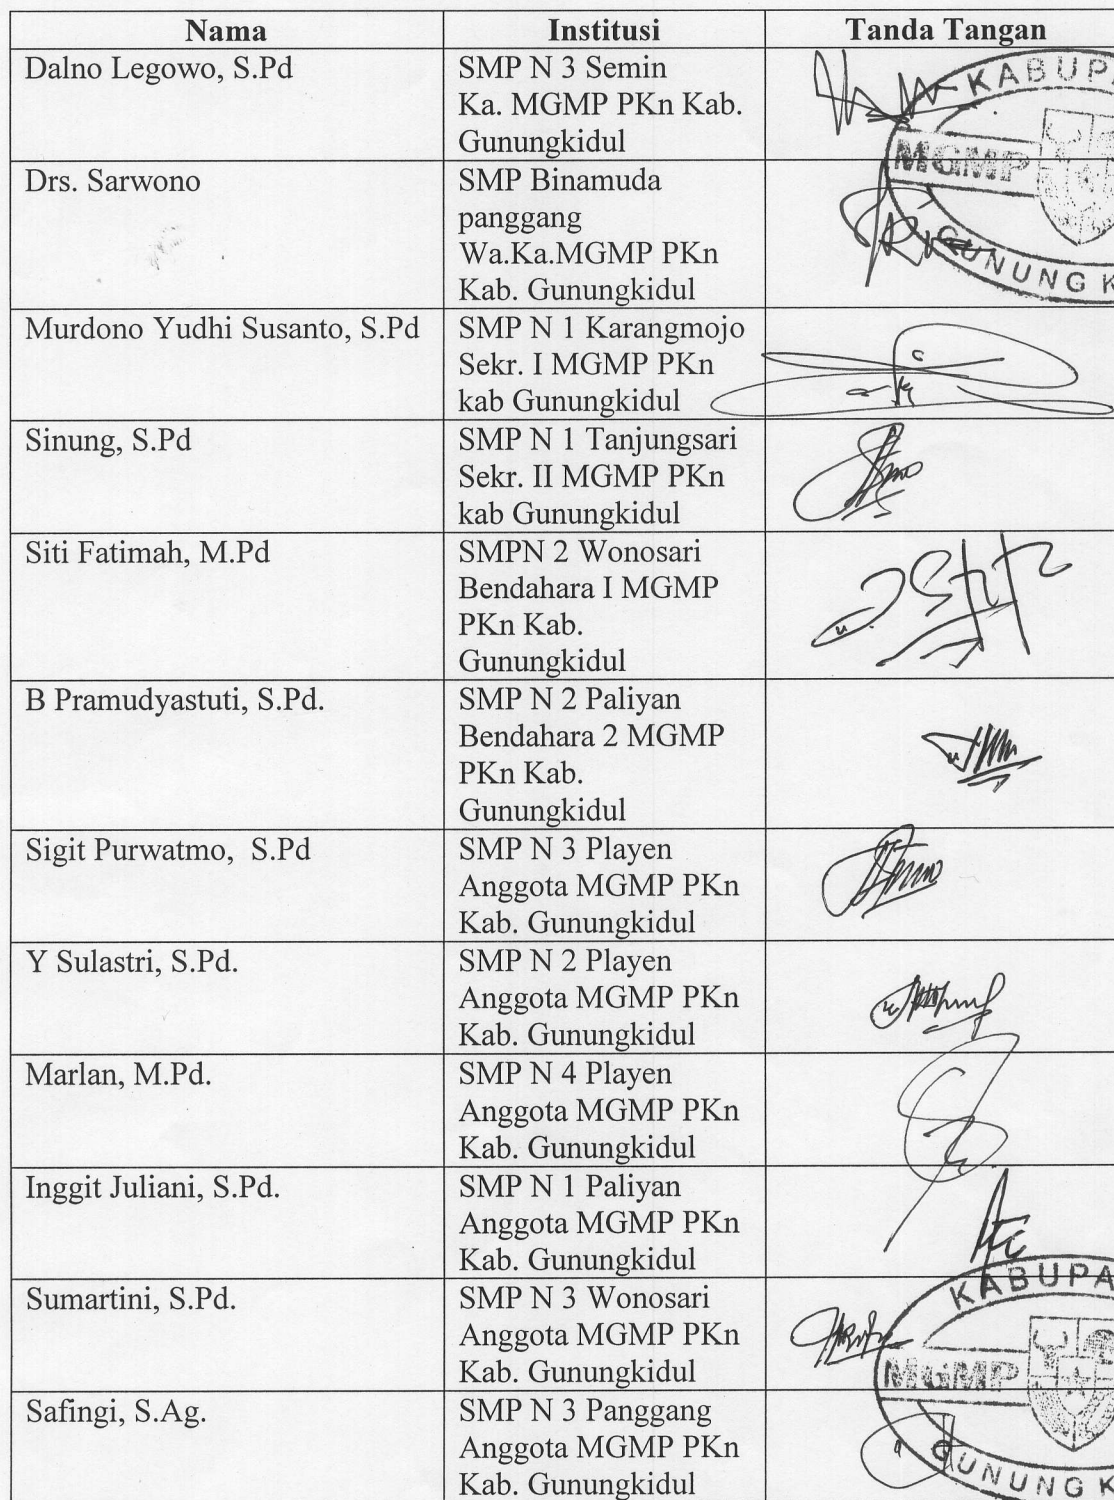 Nama Institusi Tanda Tangan
Dalno Legowo, S.Pd SMP N 3 Semin
Ka. MGMP PKn Kab.
Gunungkidul
KABUPA
MGMP
GUNUNG K
Drs. Sarwono SMP Binamuda
panggang
Wa.Ka.MGMP PKn
Kab. Gunungkidul
Murdono Yudhi Susanto, S.Pd SMP N 1 Karangmojo
Sekr. I MGMP PKn
kab Gunungkidul
Sinung, S.Pd SMP N 1 Tanjungsari
Sekr. II MGMP PKn
kab Gunungkidul
Siti Fatimah, M.Pd SMPN 2 Wonosari
Bendahara I MGMP
PKn Kab.
Gunungkidul
B Pramudyastuti, S.Pd. SMP N 2 Paliyan
Bendahara 2 MGMP
PKn Kab.
Gunungkidul
Sigit Purwatmo, S.Pd SMP N 3 Playen
Anggota MGMP PKn
Kab. Gunungkidul
Y Sulastri, S.Pd. SMP N 2 Playen
Anggota MGMP PKn
Kab. Gunungkidul
Marlan, M.Pd. SMP N 4 Playen
Anggota MGMP PKn
Kab. Gunungkidul
Inggit Juliani, S.Pd. SMP N 1 Paliyan
Anggota MGMP PKn
Kab. Gunungkidul
Sumartini, S.Pd. SMP N 3 Wonosari
Anggota MGMP PKn
Kab. Gunungkidul
KABUPA
MGMP
GUNUNG K
Safingi, S.Ag. SMP N 3 Panggang
Anggota MGMP PKn
Kab. Gunungkidul